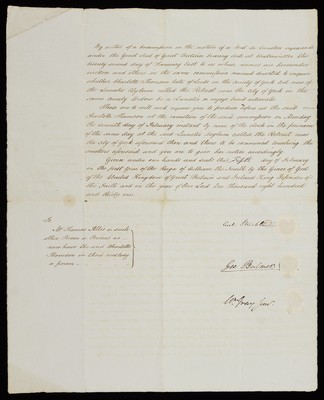 By virtue of a Commission in the nature of a Writ de Lunatico inquirendo
under the Great Seal of Great Britain bearing date at Westminster the
twenty second day of January last to us whose names are hereunder
written and others in the same commission named directed to inquire
whether Charlotte Thomson late of Leeds in the County of York but now of
the Lunatic Asylum called the Retreat near the City of York in the
same County Widow be a Lunatic or enjoys lucid intervals
These are to will and require you to produce before us the said
Charlotte Thomson at the execution of the said commission on Monday
the seventh day of February instant by nine of the clock in the forenoon
of the same day at the said Lunatic Asylum called the Retreat near
the City of York aforesaid then and there to be examined touching the
matters aforesaid and you are to give her notice accordingly
Given under our hands and seals this Fifth day of February
in the first year of the Reign of William the fourth by the Grace of God
of the United Kingdom of Great Britain and Ireland King Defender of
the Faith and in the year of Our Lord One thousand eight hundred
and thirty one
To
Mr Thomas Allis or such
other Person or Persons as
now have the said Charlotte
Thomson in their custody
or power
Geo Bulmer
Wm Gray Junr